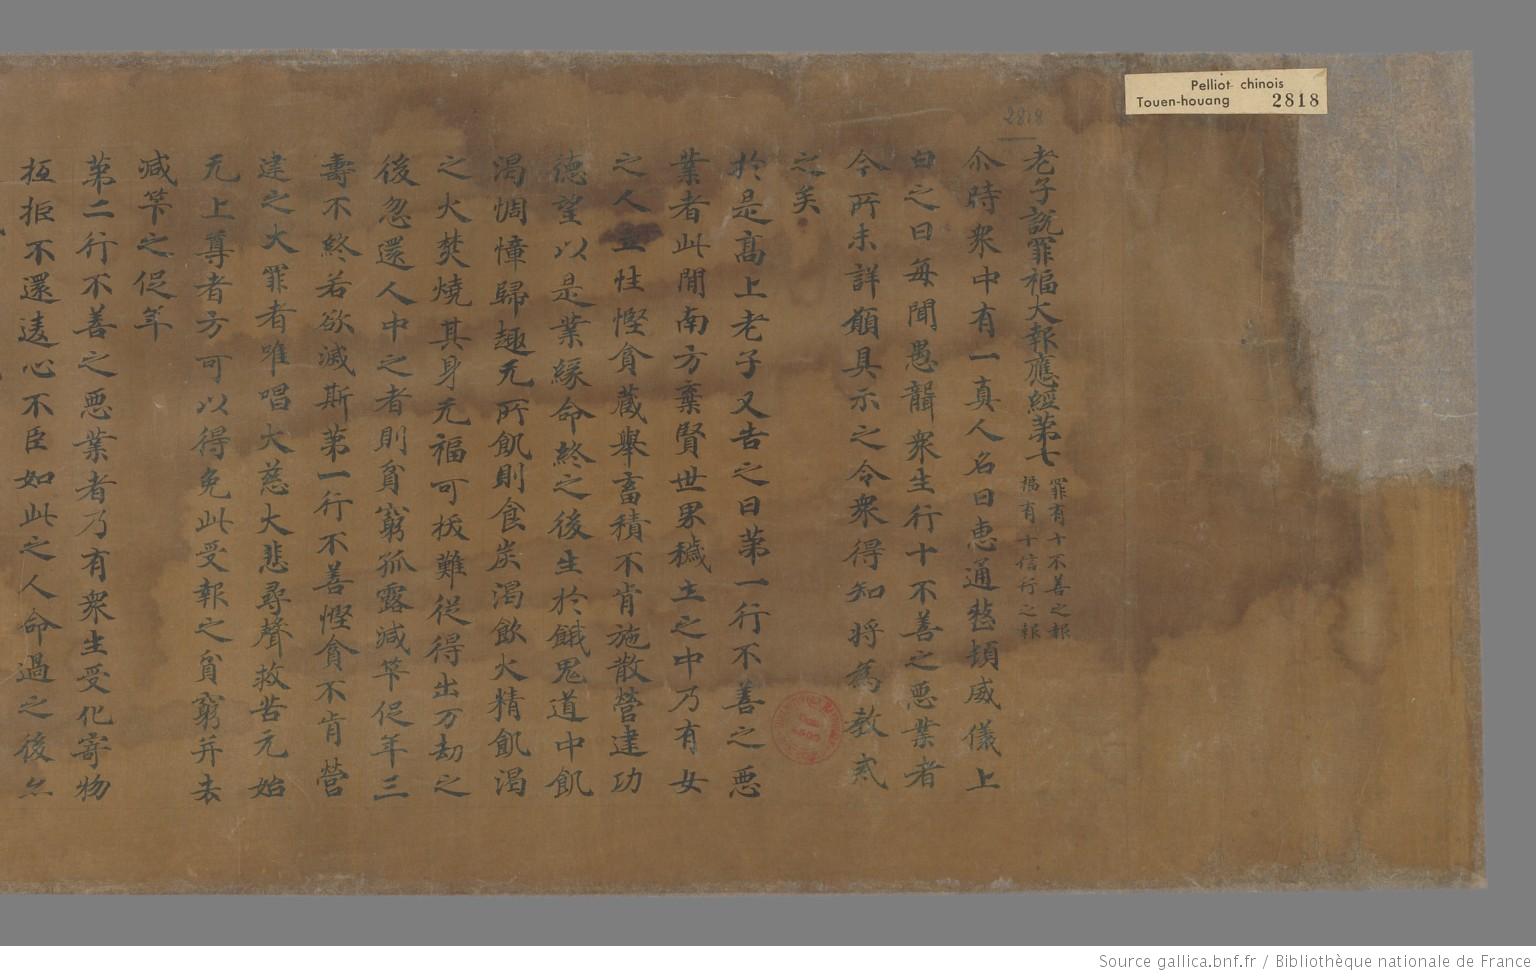 Pelliot chinois
Touen-houang 2818
2818
老子説罪福大報應經第七
罪有十不善之報
福有十信行之報
尒時衆中有一真人名曰恵通整頓威儀上
白之曰每聞愚聾衆生行十不善之惡業者
今所未詳願具示之令衆得知將爲教戒
之美
於是髙上老子又告之曰第一行不善之惡
業者此閒南方棄賢世界穢土之中乃有女
之人立性慳貪藏舉畜積不肯施散營建功
德望以是業緣命終之後生於餓鬼道中飢
渴惆悵歸趣无所飢則食炭渴飲火精飢渴
之火焚燒其身无福可拔難従得出万劫之
後忽還人中之者則貧窮孤露減筭促年三
壽不終若欲滅斯第一行不善慳貪不肯營
建之大罪者唯唱大慈大悲尋聲救苦元始
无上尊者方可以得免此受報之貧窮并去
減筭之促年
第二行不善之惡業者乃有衆生受化寄物
拒不還逺心不臣如此之人命過之後
Source gallica.bnf.fr / Bibliothèque nationale de France